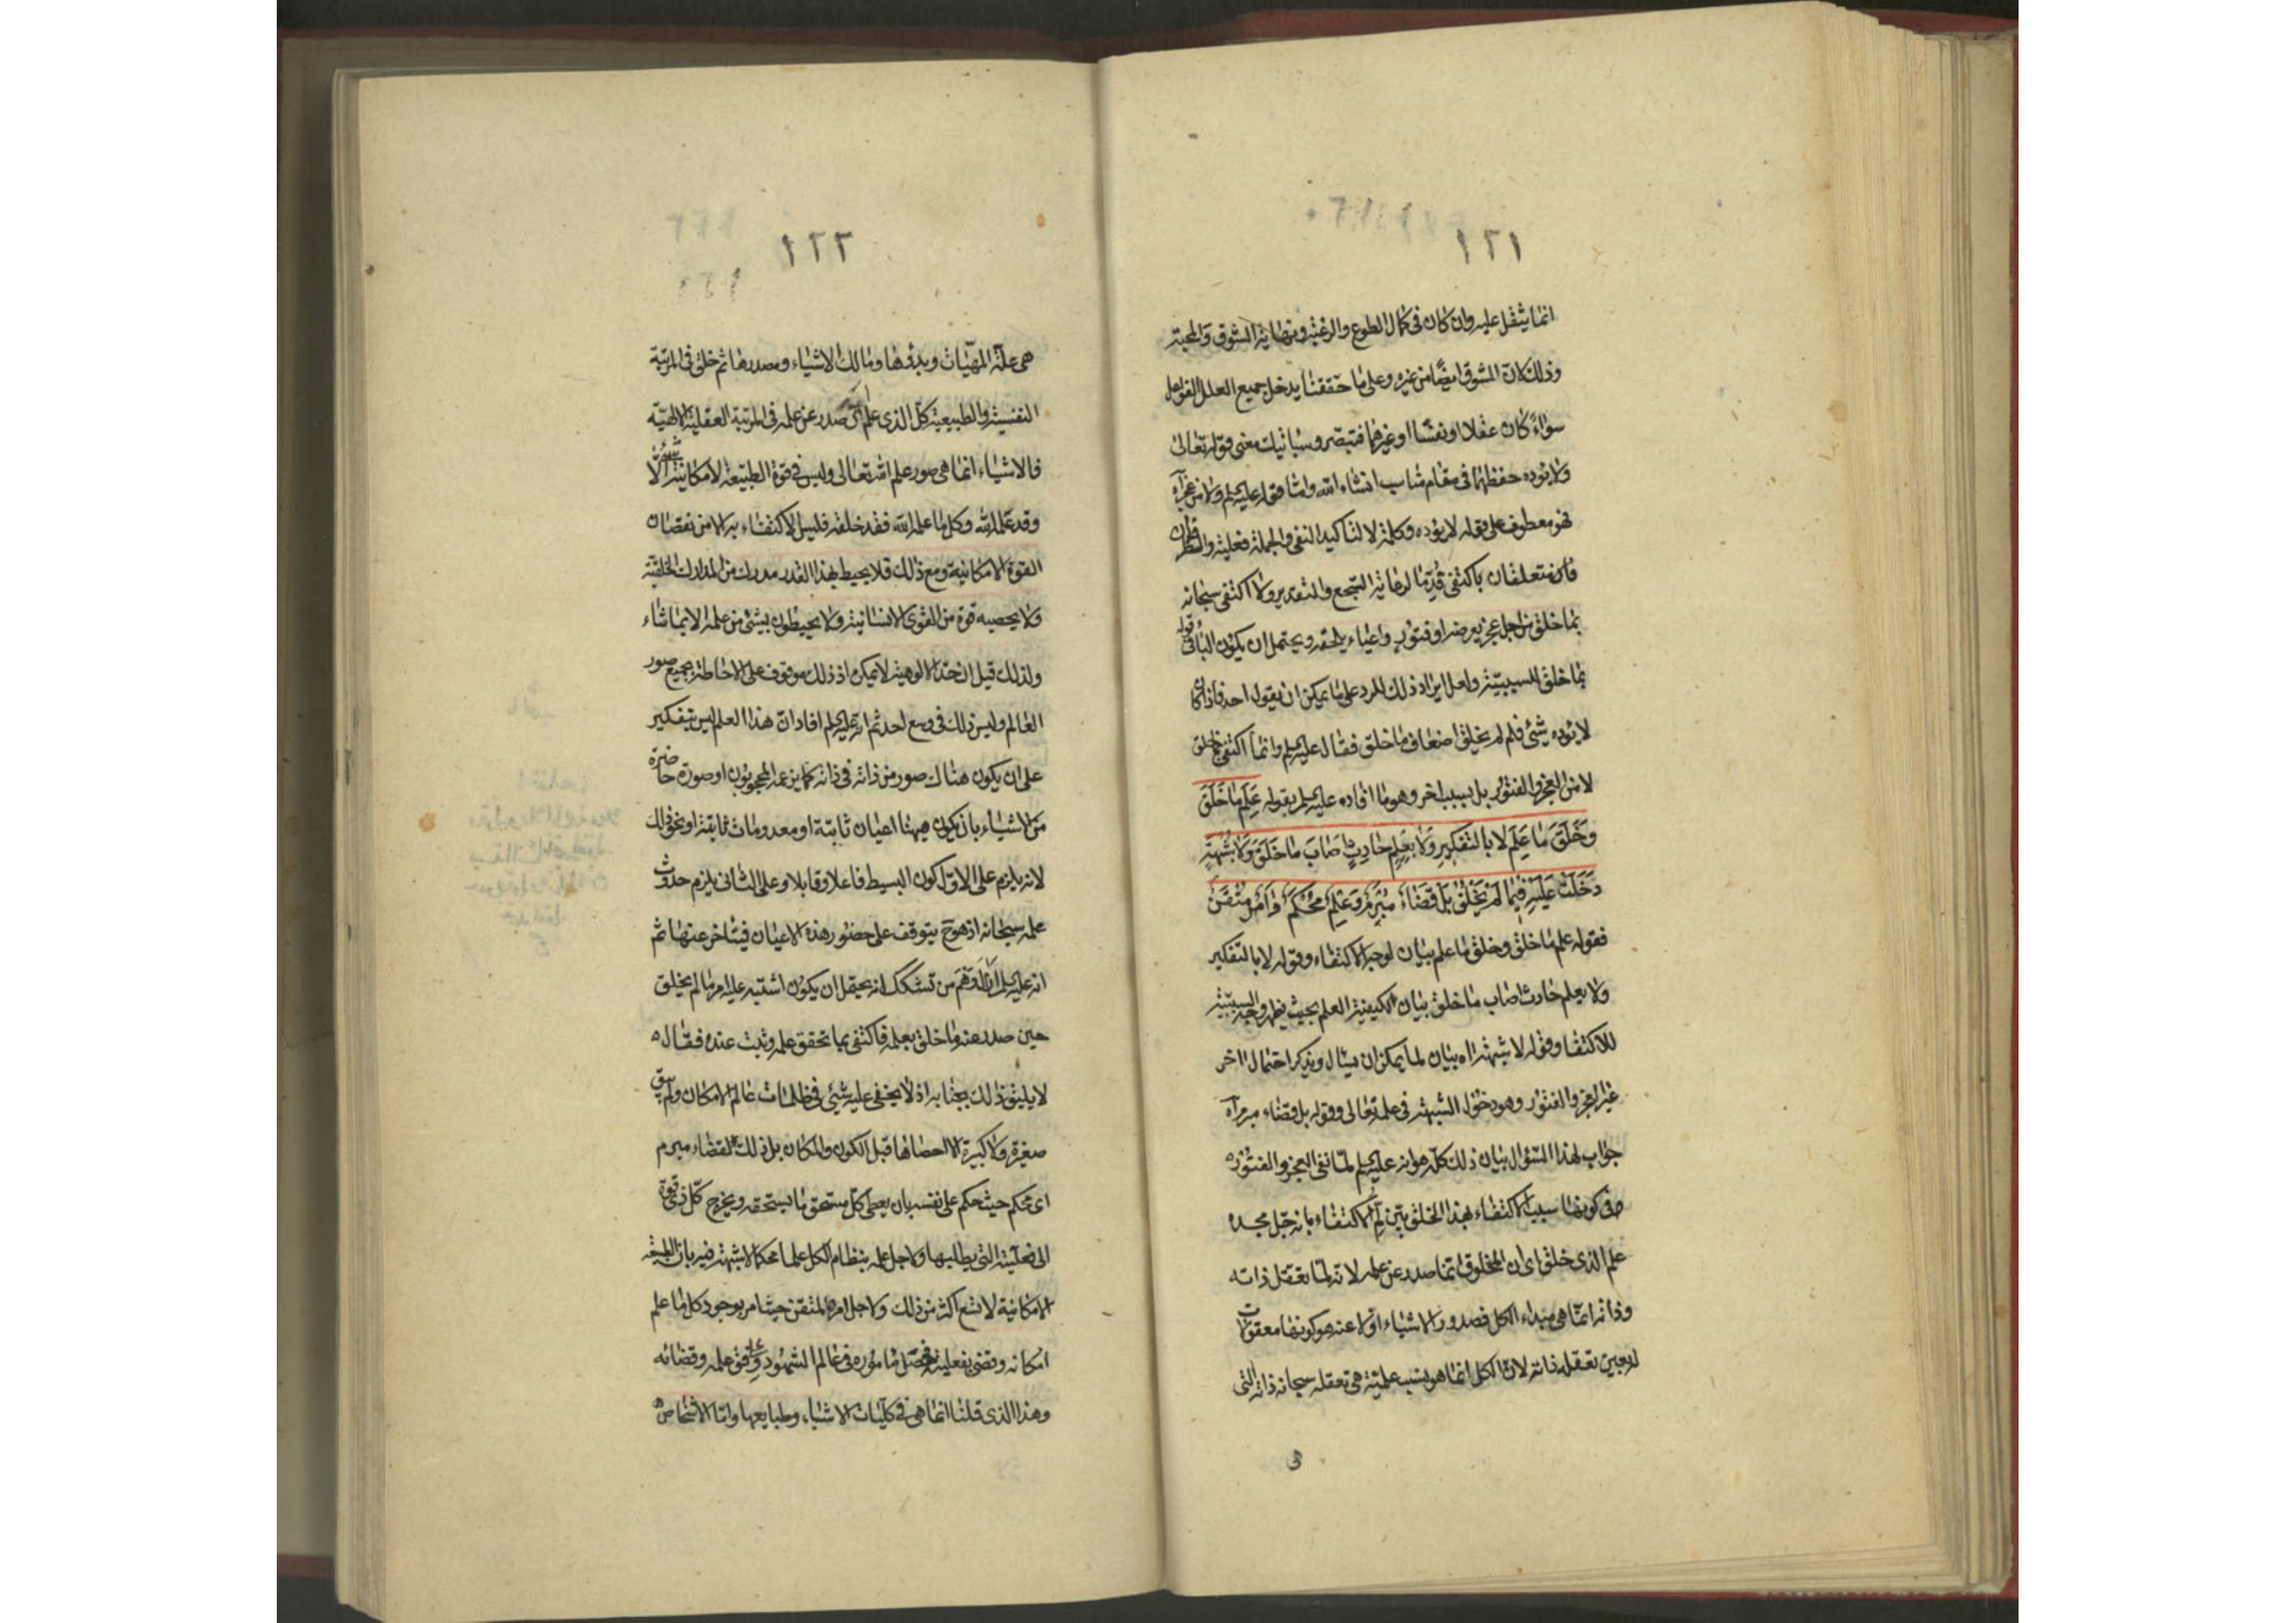 ١٢١
انما يثقل عليه وان كان فى كمال الطوع والرغبة ونهاية الشوق والمحبة
وذلك لان الشوق ايضًا من غيره وعلى ما حققنا يدخل جميع العلل الفواعل
سواء كان عقلا او نفسًا او غيرهما فتبصر وسيأتيك معنى قوله تعالى
ولا يؤده حفظهما فى مقام مناسب انشاء الله واما قوله عليه السلم ولا من عجز آه
فهو معطوف على قوله لا يؤده وكلمة لا لتأكيد النفى والجملة فعلية والظرفان
متعلقان باكتفى قدّما لرعاية السجع والتقدير ولا اكتفى سبحانه
بما خلق من اجل عجز يعرضه او فتور واعياء يلحقه ويحتمل ان يكون الباء فى قوله
بما خلق للسببية ولعل ايراد ذلك للرد على ما يمكن ان يقول احد فاذا كان
لا يؤده شئ فلم لم يخلق اضعاف ما خلق فقال عليه السلم وانما اكتفى بما خلق
لا من العجز والفتور بل بسبب اخر وهو ما افاده عليه السلم بقوله عَلِمَ ما خَلَقَ
وخَلَقَ ما عَلِمَ لا بالتفكيرِ ولا بعِلمٍ حادِثٍ اصَابَ ما خَلَقَ ولا شُبْهَةٍ
دَخَلَت عَلَيْهِ فيما لَمْ يَخْلُقْ بَلْ قضاءٌ مُبْرَمٌ وعِلمٌ مُحْكَمٌ وامرٌ مُتْقَنٌ
فقوله علم ما خلق وخلق ما علم بيان لوجه الاكتفاء وقوله لا بالتفكير
ولا بعلم حادث اصاب ما خلق بيان لكيفية العلم بحيث يظهر وجه السببية
للاكتفا وقوله لا شبهة اه بيان لما يمكن ان يسئال ويذكر احتمال اخر
غير العجز والفتور وهو دخول الشبهة فى علمه تعالى وقوله بل قضاء مبرم آه
جواب لهذا السؤال بيان ذلك كله هو انه عليه السلم لما نفى العجز والفتور
فى كونهما سببا لاكتفاء بهذا الخلق بيّن لِمَ الاكتفاء بانه جل مجده
علم الذى خلق اى ان المخلوق انما صدر عن علمه لانه لما تعقل ذاته
وذاته انما هى مبداء الكل فصدور الاشياء اولا عنه هو كونها معقولات
له بعين تعقله ذاته لان الكل انما هو بنسب علمية هى تعقله سبحانه ذاته التى
١٢٢
هى علة المهيّات وبدؤها ومالك الاشياء ومصدرها ثم خلق فى المرتبة
النفسية والطبيعية كل الذى علم اى صدر عن علمه فى المرتبة العقلية الالهيّة
فالاشياء انما هى صور علم الله تعالى وليس فى قوة الطبيعة الامكانية شئ الّا
وقد علمه الله وكل ما علمه الله فقد خلقه فليس الاكتفاء به الا من نقصان
القوة الامكانية ومع ذلك فلا يحيط بهذا القدر مدرك من المدارك الخلقية
ولا يحصيه قوة من القوى الانسانية ولا يحيطون بشئ من علمه الا بما شاء
ولذلك قيل ان حدّ الالوهية لا يمكن اذ ذلك موقوف على الاحاطة بجميع صور
العالم وليس ذلك فى وسع احد ثم انه عليه السلم افاد ان هذا العلم ليس بتفكير
على ان يكون هناك صور من ذاته فى ذاته كما يزعمه المحجوبون او صورة حاضرة
من الاشياء بان يكون ههنا اعيان ثابتة او معدومات ثابتة او نحو ذلك
لانه يلزم على الاول كون البسيط فاعلا وقابلا وعلى الثانى يلزم حدوث
علمه سبحانه اذ هو ح يتوقف على حضور هذه الاعيان فيتأخر عنها ثم
انه عليه السلم ازال توهم من تشكك انه يحتمل ان يكون اشتبه عليه امر ما لم يخلق
حين صدر عنه ما خلق بعلمه فاكتفى بما تحقق علمه وثبت عنده فقال
لا يليق ذلك بجنابه اذ لا يخفى عليه شئ فى ظلمات عالم الامكان ولم يبق
صغيرة ولا كبيرة الا احصاها قبل الكون والمكان بل ذلك لقضاء مبرم
اى محكم حيث حكم على نفسه بان يعطى كل مستحق ما يستحقه ويخرج كل ذى قوة
الى فعليته التى يطلبها ولاجل علمه بنظام الكل علما محكما لا شبهة فيه بان الطبيعة
الامكانية لا تسع اكثر من ذلك ولاجل امره المتقن حيث امر بوجود كل ما علم
امكانه وقضى بفعليته فحصل مأموره فى عالم الشهود على وفق علمه وقضائه
وهذا الذى قلنا انما هى فى كليات الاشياء وطبايعها واما الاشخاص